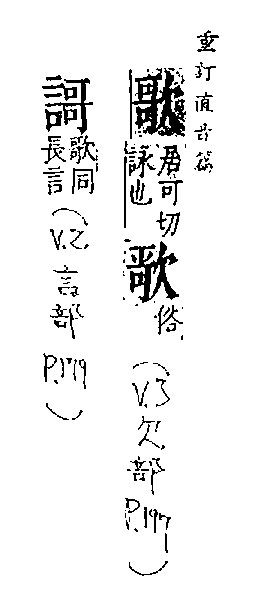 重訂直音篇
歌 居可切 詠也 歌 俗 (V.3 欠部 P.197)
謌 歌同 長言 (V.2 言部 P.179)